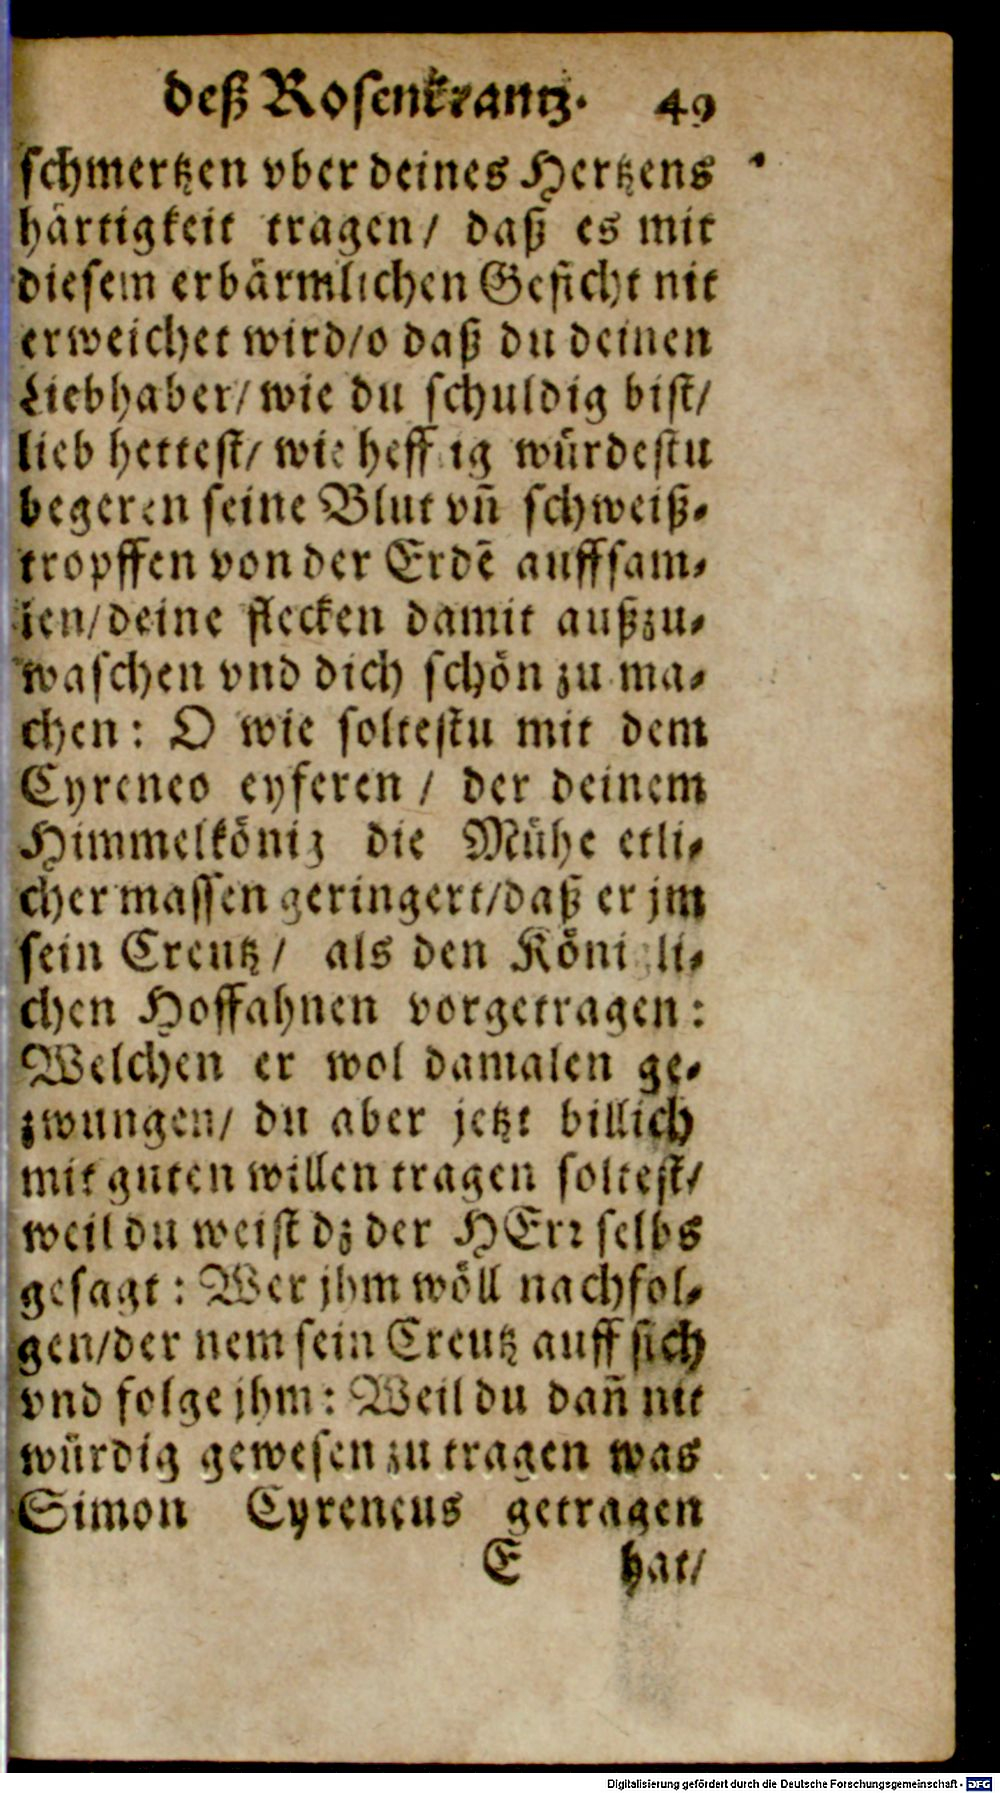 deß Rosenkrantz. 49
schmertzen vber deines Hertzens
härtigkeit tragen/ daß es mit
diesem erbärmlichen Gesicht nit
erweichet wird/o daß du deinen
Liebhaber/ wie du schuldig bist/
lieb hettest/ wie hefftig würdestu
begeren seine Blut vn̄ schweiß⸗
tropffen von der Erdē auffsam⸗
len/deine flecken damit außzu⸗
waschen vnd dich schön zu ma⸗
chen: O wie soltestu mit dem
Cyreneo eyferen / der deinem
Himmelkönig die Mühe etli⸗
cher massen geringert/daß er jm
sein Creutz/ als den Königli⸗
chen Hoffahnen vorgetragen:
Welchen er wol damalen ge⸗
zwungen/ du aber jetzt billich
mit guten willen tragen soltest/
weil du weist dz der HErr selbs
gesagt: Wer jhm wöll nachfol⸗
gen/der nem sein Creutz auff sich
vnd folge jhm: Weil du dan̄ nit
würdig gewesen zu tragen was
Simon Cyreneus getragen
E hat/
Digitalisierung gefördert durch die Deutsche Forschungsgemeinschaft - DFG